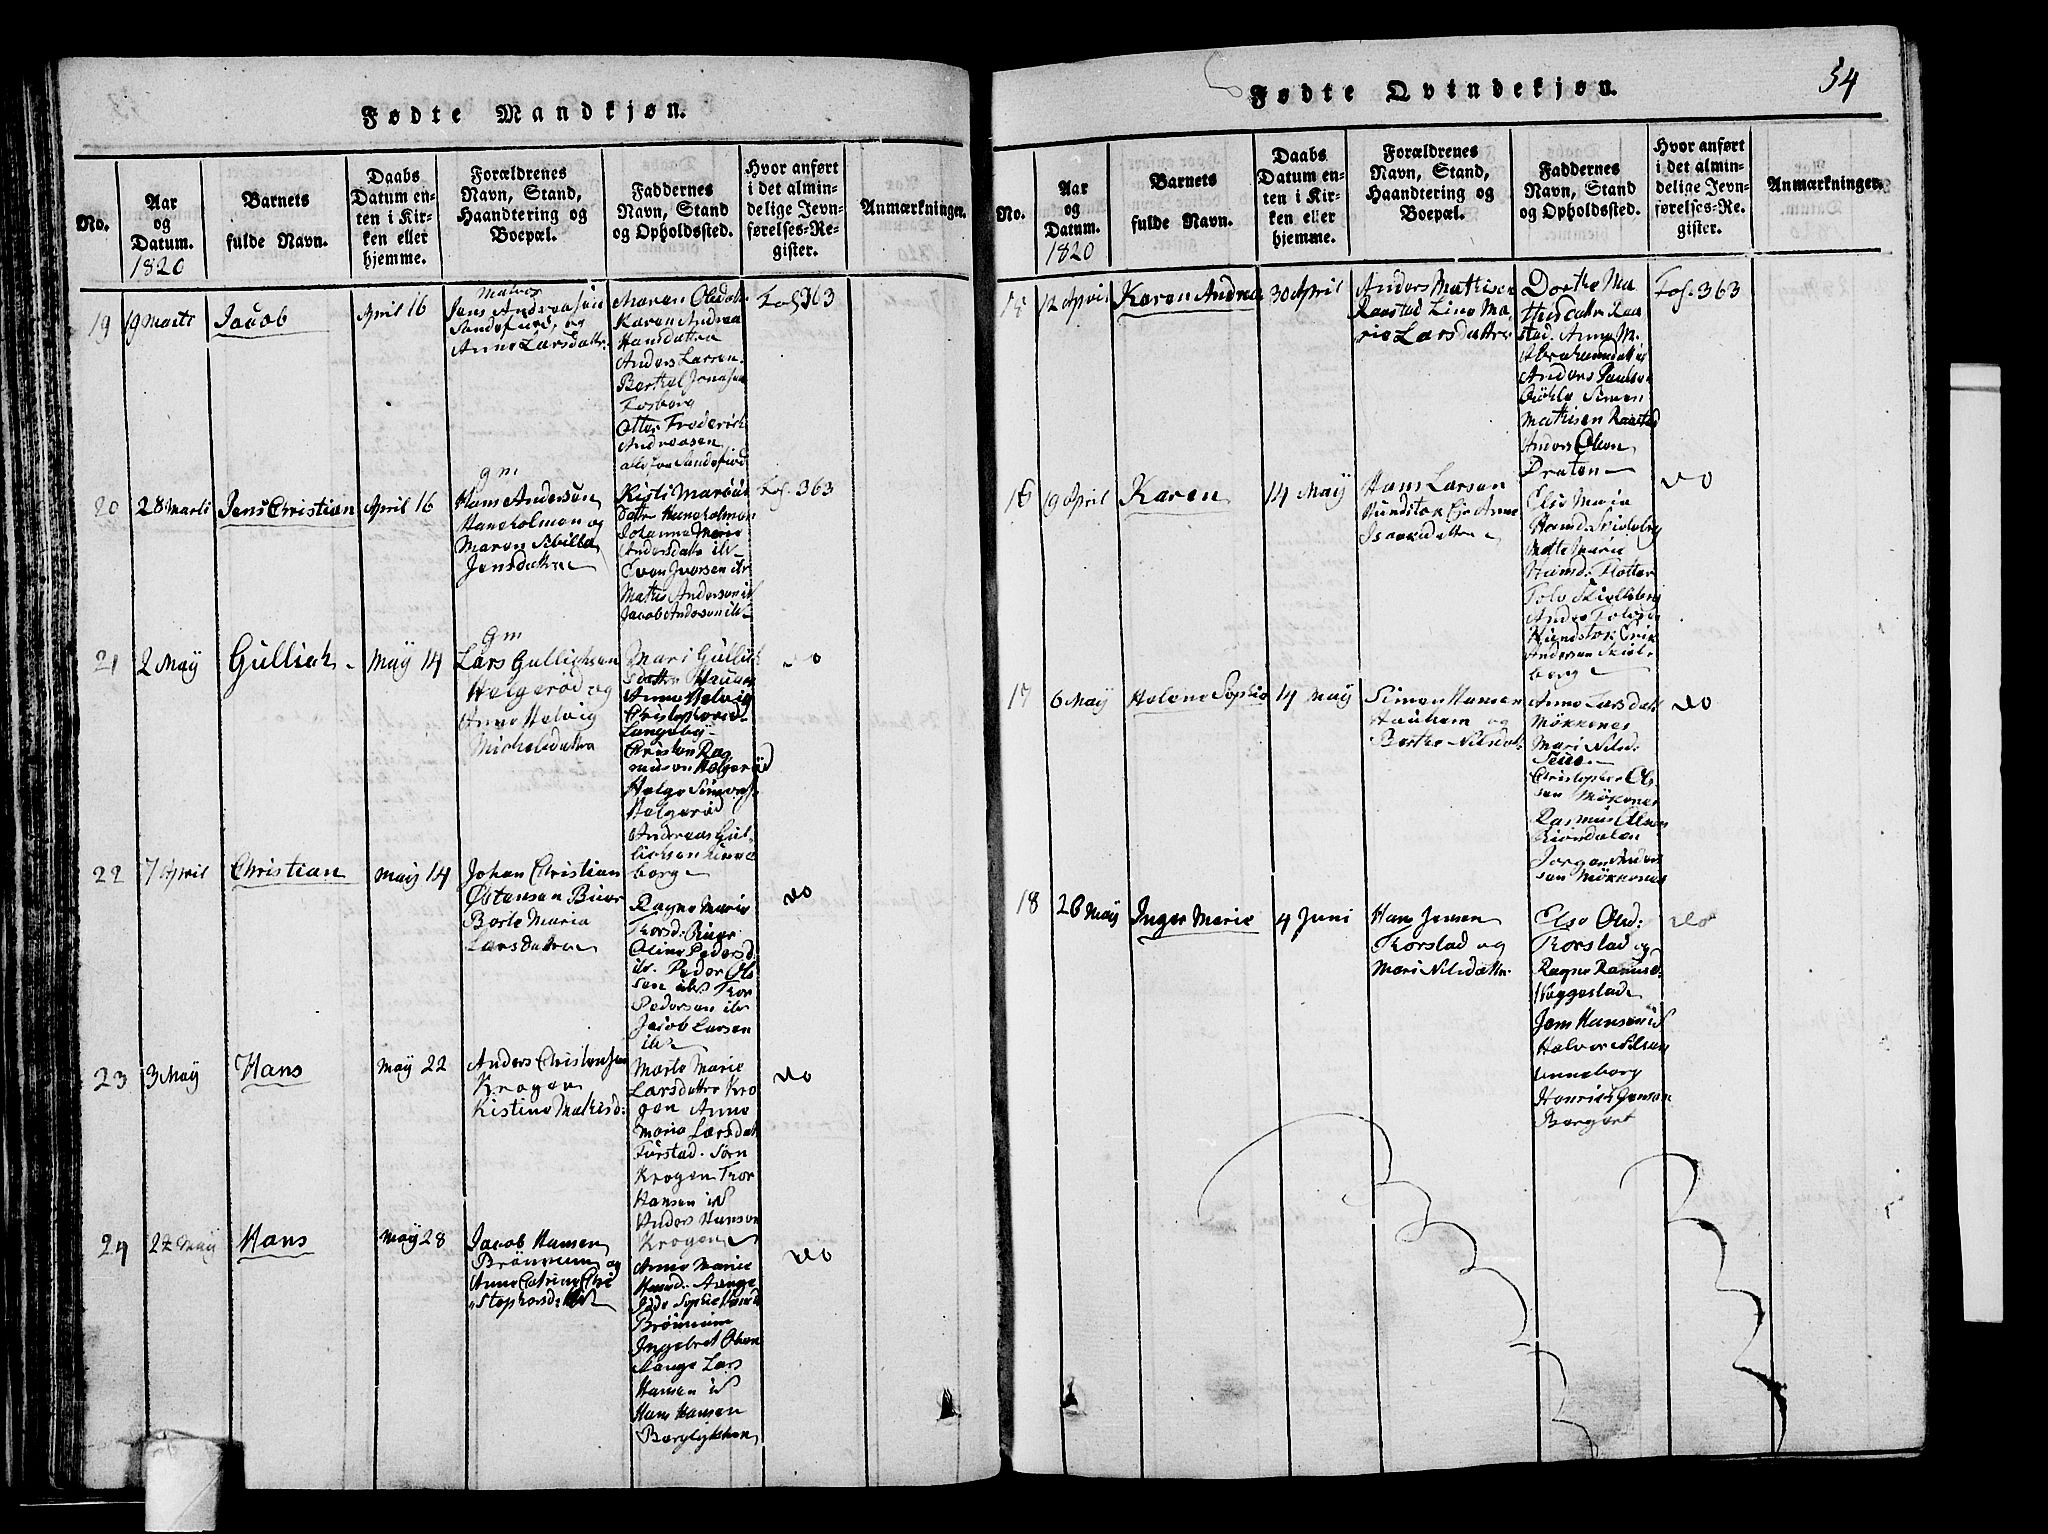 Fødte Mandkjøn.
No.
Aar
og
Datum.
1820
Barnets
fulde Navn.
Daabs
Datum en-
ten i Kir-
ken eller
hjemme.
Forældrenes
Navn, Stand,
Haandtering og
Boepæl.
Faddernes
Navn, Stand
og Opholdssted.
Hvor anført
i det almin-
delige Jevn-
førelses-Re-
gister.
Anmærkninger.
19
19 Marts
Jacob
April 16
Matros
Jens Andreasen
Sandefiord, og
Anne Larsdattr.
Maren Olsdatt.
Karen Andrea
Hansdattre
Anders Larsen.
Berthel Jonasen
Fosberg
Otter Frederich
Andreasen
alle fra Sandefiord
Fol. 363
20
28 Marti
Jens Christian
April 16
gm
Hans Andersen
Haneholmen og
Maren Sibilla
Jensdattre
Kisti
Haneholmen
Johanne Marie
Andersdattr ib
Even Iversen ib
Mathis Andersen ib
Jacob Andersen ib
Fol. 363
21
2 May
Gullich
May 14
gm
Lars Gullichsen
Helgerød og
Anne Helvig
Michelsdattre
Mari Gullich
sdattre Hauan
Anne Helvig
Christophersd
Langeby
Christen Ras
musen Helgerød
Helge Simens
Helgerød
Andreas Gul-
lichsen Unne
berg
do
22
7 April
Christian
May 14
Johan Christian
Østensen Buer
Berte Maria
Larsdattre
Ragne Marie
Thorsd: Buer
Oline Pedersd
ib. Peder Ol
sen ib Thor
Pedersen ib
Jacob Larsen
ib
do
23
3 May
Hans
May 22
Anders Christensen
Krogen
Kistine Mathisd:
Marte Marie
Larsdattre Kro
gen Anne
Maria Larsdatt
Furstad. Sørn
Krogen Thor
Hansen ib
Anders Hansen
Krogen
do
24
22 May
Hans
May 28
Jacob Hansen
Brønnum og
Anne Catrine Chri
stophersd
Anne Marie
Hansd:
Sophie
Brønnum
Ingebret Olsen
Lars
Hansen ib
Hans Hansen
Bergløkken
do
Fødte Qvindekjøn.
54
No.
Aar
og
Datum.
1820
Barnets
fulde Navn.
Daabs
Datum en-
ten i Kir-
ken eller
hjemme.
Forældrenes
Navn, Stand,
Haandtering og
Boepæl.
Faddernes
Navn, Stand
og Opholdssted.
Hvor anført
i det almin-
delige Jevn-
førelses-Re-
gister.
Anmærkninger.
15
12 April
Karen Andrea
30 April
Anders Mathisen
Raastad Line Ma
rie Larsdattre
Dorthe Ma
thisdattr Raa
stad. Anne M.
Abrahamsdatter
Anders Paulsen
Simen
Mathisen Raastad
Anders Olsen
Praten
Fol. 363
16
19 April
Karen
14 May
Hans Larsen
Hundstok Eje Anne
Isaaksdattre
Else Maria
Hansd: Skielsberg
Mette Marie
Hansd: Flotter
Tolv Skielsberg
Anders Tolvsen
Hundstok Erik
Andersen Skiel-
berg
do
17
6 May
Helene Sophie
14 May
Simen Hansen
Hauham og
Berthe Nilsdat.
Anne Larsdatt
Møkkenes
Mari Nilsd:
Christopher Ol-
sen Møkenes
Rasmus Olsen
Jørgen Ander
sen Møkkenes
do
18
26 May
Inger Marie
4 Juni
Hans Jensen
Thorstad og
Mari Nilsdattr.
Else Olsd:
Thorstad og
Ragne Ramusd.
Heggestad
Jens Hansen ib
Halvor Nilsen
Unneberg
Henrich Jensen
Berget
do